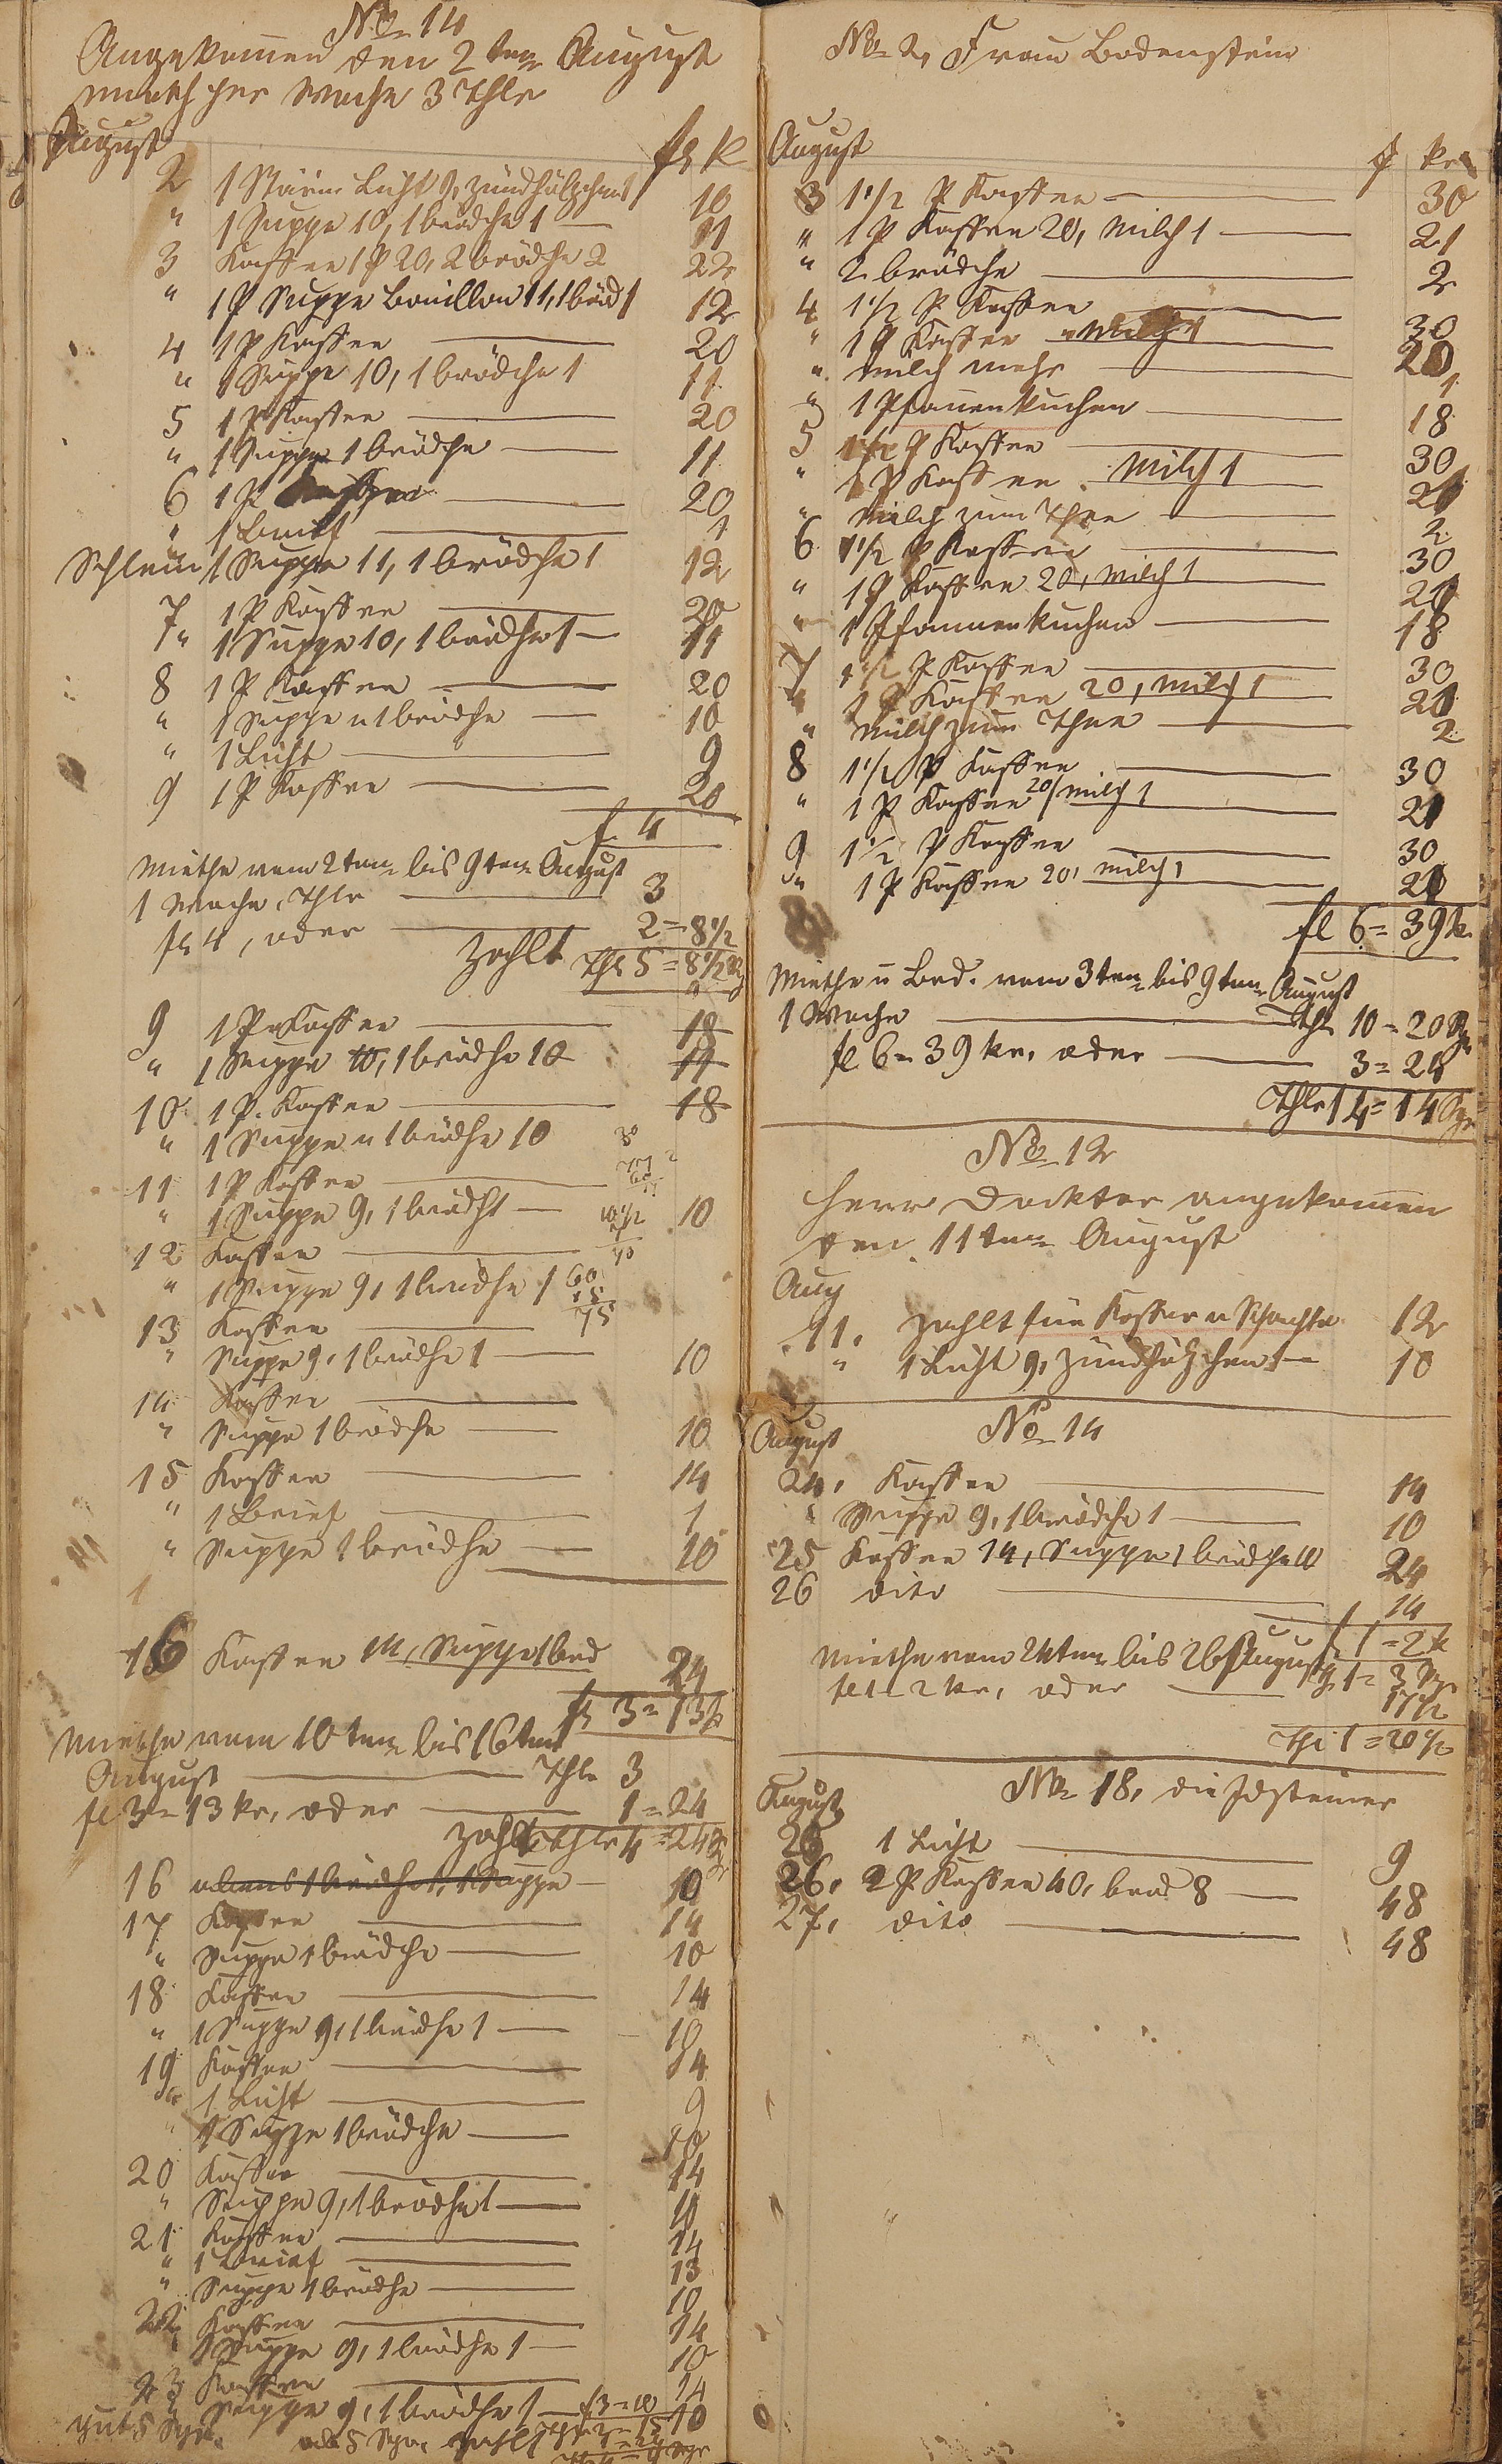 No 14
Angekommen den 2ten August
per Woche 3 Thlr
August fl k
2 1 Stearin Licht 9, Zündhölzchen 1 10
" 1 Suppe 10, 1 brödche 1 — 11
3 Kaffee 1 P 20, 2 brödche 2 22
" 1 P Suppe Bouillon 11, 1 bröd 1 12
4 1 P Kaffee — 20
" 1 Suppe 10, 1 brödche 1 11
5 1 P Kaffee — 20
" 1 Suppe 1 brödche — 11
6 1 P Kaffee — 20
" 1 Brief — 1
Schleim 1 Suppe 11, 1 brödche 1 12
7 1 P Kaffee — 20
" 1 Suppe 10, 1 brödche 1 — 11
8 1 P Kaffee — 20
" 1 Suppe u 1 brödche — 10
" 1 Licht — 9
9 1 P Kaffee — 20
f. 4
Miethe vom 2ten bis 9ten August
1 Woche, Thlr — 3
fl 4, oder — 2 = 8 1/2
zahlt Thl 5 = 8 1/2
9 1 P Kaffee — 18
" 1 Suppe 10, 1 brödche 10 11
10 1 P. Kaffee — 18
" 1 Suppe u 1 brödche 10
11 1 P Kaffee —
" 1 Suppe 9, 1 brödch 1 — 10
12 Kaffee —
" 1 Suppe 9, 1 brödche 1 60
15
75
13 Kaffee —
" Suppe 9, 1 brödche 1 — 10
14 Kaffee —
" Suppe 1 brödche — 10
15 Kaffee — 14
" 1 Brief — 1
" Suppe 1 brödche — 10
1
16 Kaffee 14, Suppe 1 bröd 24
fl 3 = 13 k
Miethe vom 10ten bis 16ten
August — Thlr 3
fl 3 = 13 kr, oder — 1 = 24
zahlt Thlr 4 = 24 Sgr
16 abends 1 brödche 1, 1 Suppe — 10
17 Kaffee — 14
" Suppe 1 brödche — 10
18 Kaffee — 14
" 1 Suppe 9, 1 brödche 1 — 10
19 Kaffee — 14
" 1 Licht — 9
" 1 Suppe 1 brödche — 10
20 Kaffee — 14
" Suppe 9, 1 brödche 1 — 10
21 Kaffee — 14
" 1 Brief — 13
" Suppe 1 brödche — 10
22 Kaffee — 14
" 1 Suppe 9, 1 brödche 1 — 10
23 Kaffee — 14
" Suppe 9, 1 brödche 1 — 10
gut 5 Sgr.
No 2, Frau Bodenstein
August f kr
3 1 1/2 P Kaffee — 30
" 1 P Kaffee 20, Milch 1 — 21
" 2 brödche — 2
4 1 1/2 P Kaffee — 30
" 1 P Kaffee Milch 1 — 20
" Milch mehr — 1
" 1 Pfannenkuchen — 18
5 1 1/2 P Kaffee — 30
" 1 P Kaffee. Milch 1 21
" Milch zum Thee — 2
6 1 1/2 P Kaffee — 30
" 1 P Kaffee 20, Milch 1 21
" 1 Pfannenkuchen — 18
7 1 1/2 P Kaffee — 30
" 1 P Kaffee 20, Milch 1 — 21
" Milch zum Thee — 2
8 1 1/2 P Kaffee — 30
" 1 P Kaffee 20, Milch 1 21
9 1 1/2 P Kaffee — 30
" 1 P Kaffee 20, Milch 1 21
fl 6 = 39 k.
Miethe u Bed. vom 3ten bis 9ten August
1 Woche — Thl 10 = 20 Sgr
fl 6 = 39 kr, oder — 3 = 24
Thlr 14 = 14 Sgr
No 12
Herr Docktor angekomen
den 11ten August
Aug
11. zahlt für Koffer u Schachtel 12
" 1 Licht 9, Zündhölzchen 1 — 10
No 14
August
24, Kaffee — 14
" Suppe 9, 1 brödche 1 — 10
25 Kaffee 14, Suppe 1 brödche 10 24
26 dito — 14
f 1 = 2 k
Miethe vom 24ten bis 26 August 1 = 3 Sgr
fl 1 = 2 kr, oder — 17 1/2
Thl 1 = 20 1/2
No 18, die Idsteiner
August
25 1 Licht — 9
26, 2 P Kaffee 40, brod 8 — 48
27, dito — 48